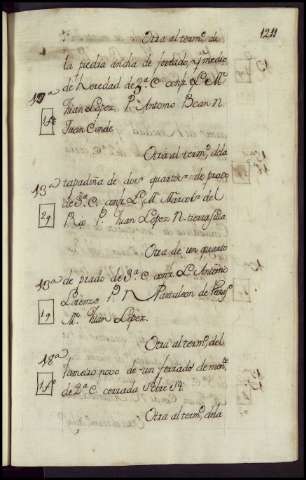 1211
Otra al term.º de
la piedra ancha de ferrado y medio
de heredad de 2ª C. conf. L. M.
Juan Lopez P. Antonio Bean N.
Juan Conde
Otra al term.º dela
tapadiña de dos quartos de prado
de 3ª C. conf. L. M. Marcos del
Rio P. Juan Lopez N.
Otra de un quarto
de prado de 3ª C. conf. L. Antonio
Lorenzo P. N. Pantaleon de
M. Juan Lopez
18ª
Otra al term.º del
lameiro novo de un ferrado de mon.te
de 2ª C. cerrada sobre si
Otra al term.º dela